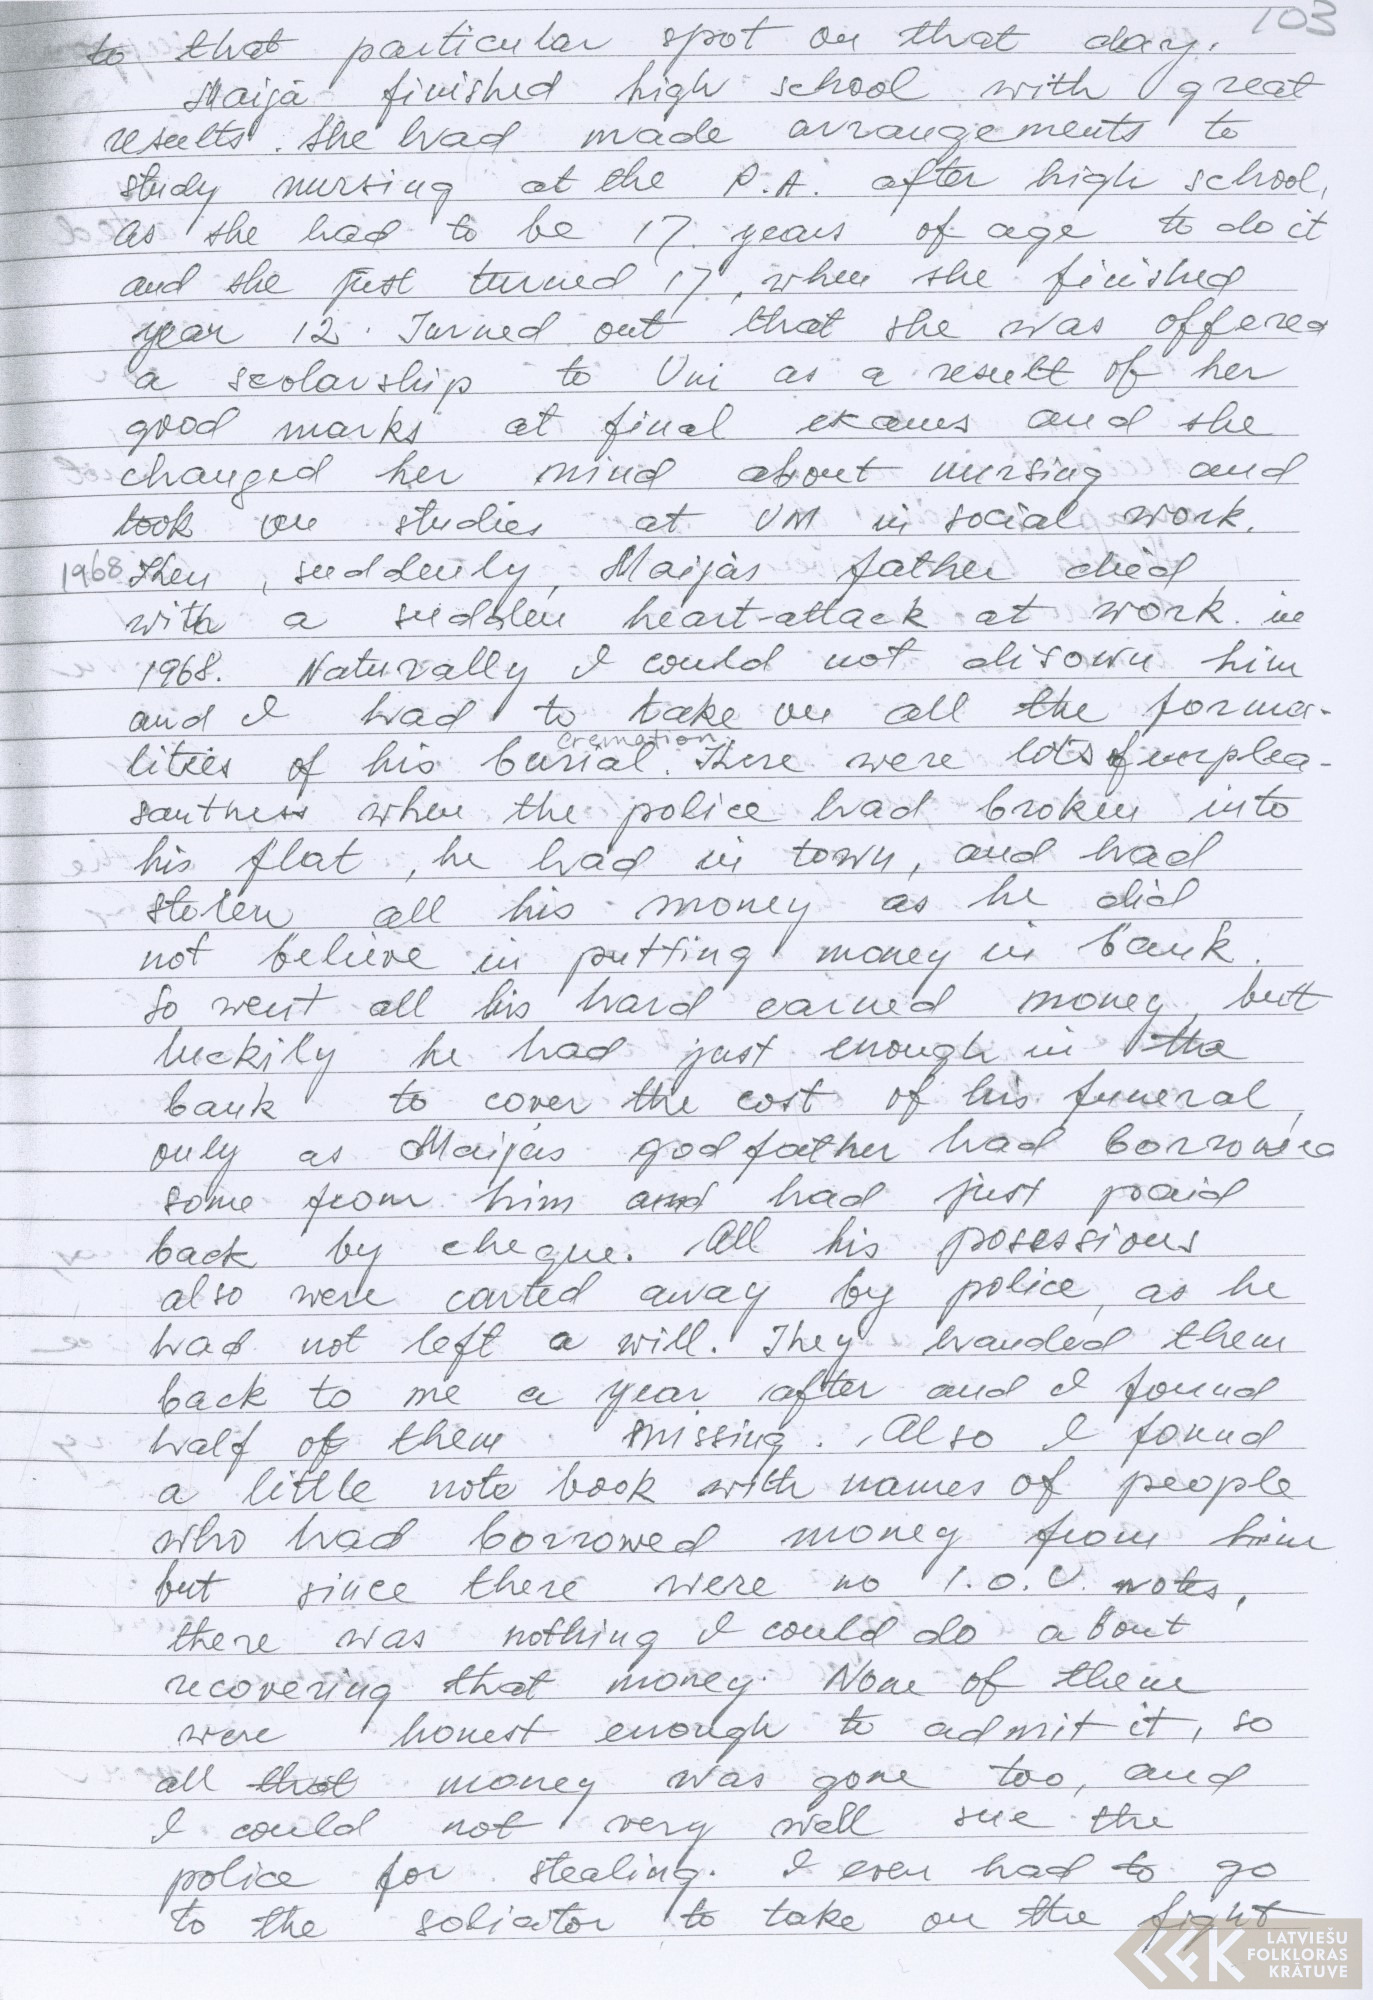 103
to that particular spot on that day.
Maija finished high school with great
results. She had made arrangements to
study nursing at the P.A. after high school,
as she had to be 17 years of age to do it
and she just turned 17, when she finished
year 12. Turned out that she was offered
a scolarship to Uni as a result of her
good marks at final exams and she
changed her mind about nursing and
took on studies at UNI in social work.
1968 Then, suddenly, Maijas father died
with a sudden heart-attack at work in
1968. Naturally I could not disown him
and I had to take on all the forma-
cremation
lities of his burial. There were lots of unplea-
santness when the police had broken into
his flat, he had in town, and had
stolen all his money as he did
not believe in putting money in bank.
So went all his hard earned money, but
luckily he had just enough in the
bank to cover the cost of his funeral,
only as Maijas godfather had borrowed
some from him and had just paid
back by cheque. All his posessions
also were carted away by police, as he
had not left a will. They handed them
back to me a year after and I found
half of them missing. Also I found
a little note book with names of people
who had borrowed money from him
but since there were no I.O.U. notes,
there was nothing I could do about
recovering that money. None of them
were honest enough to admit it, so
all that money was gone too, and
I could not very well sue the
police for stealing. I even had to go
to the solicitor to take on the fight
LATVIEŠU
FOLKLORAS
KRĀTUVE